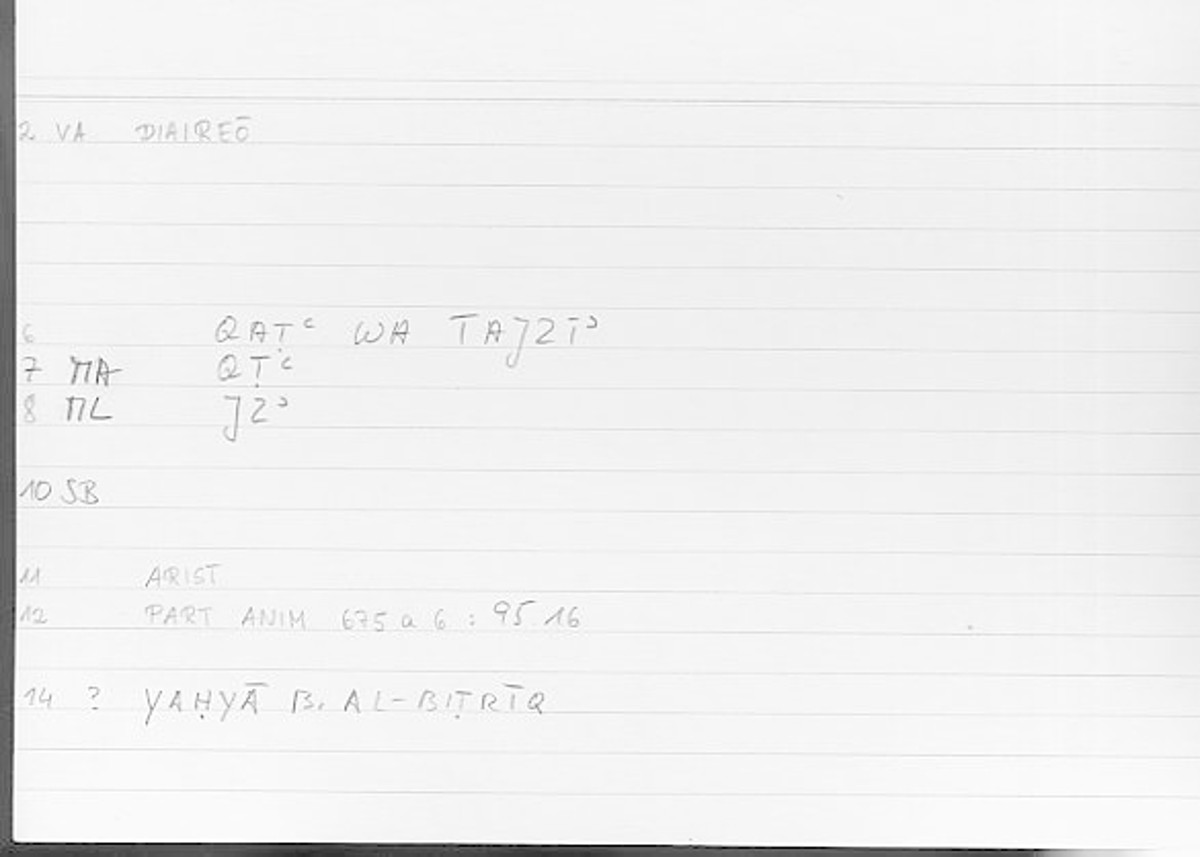 2 VA DIAIREŌ
6 QAṬʿ WA TAJZĪʾ
7 MA QṬʿ
8 ML JZʾ
10 SB
11 ARIST
12 PART ANIM 675 a 6 : 95.16
14 ? YAḤYĀ B. AL-BIṬRĪQ